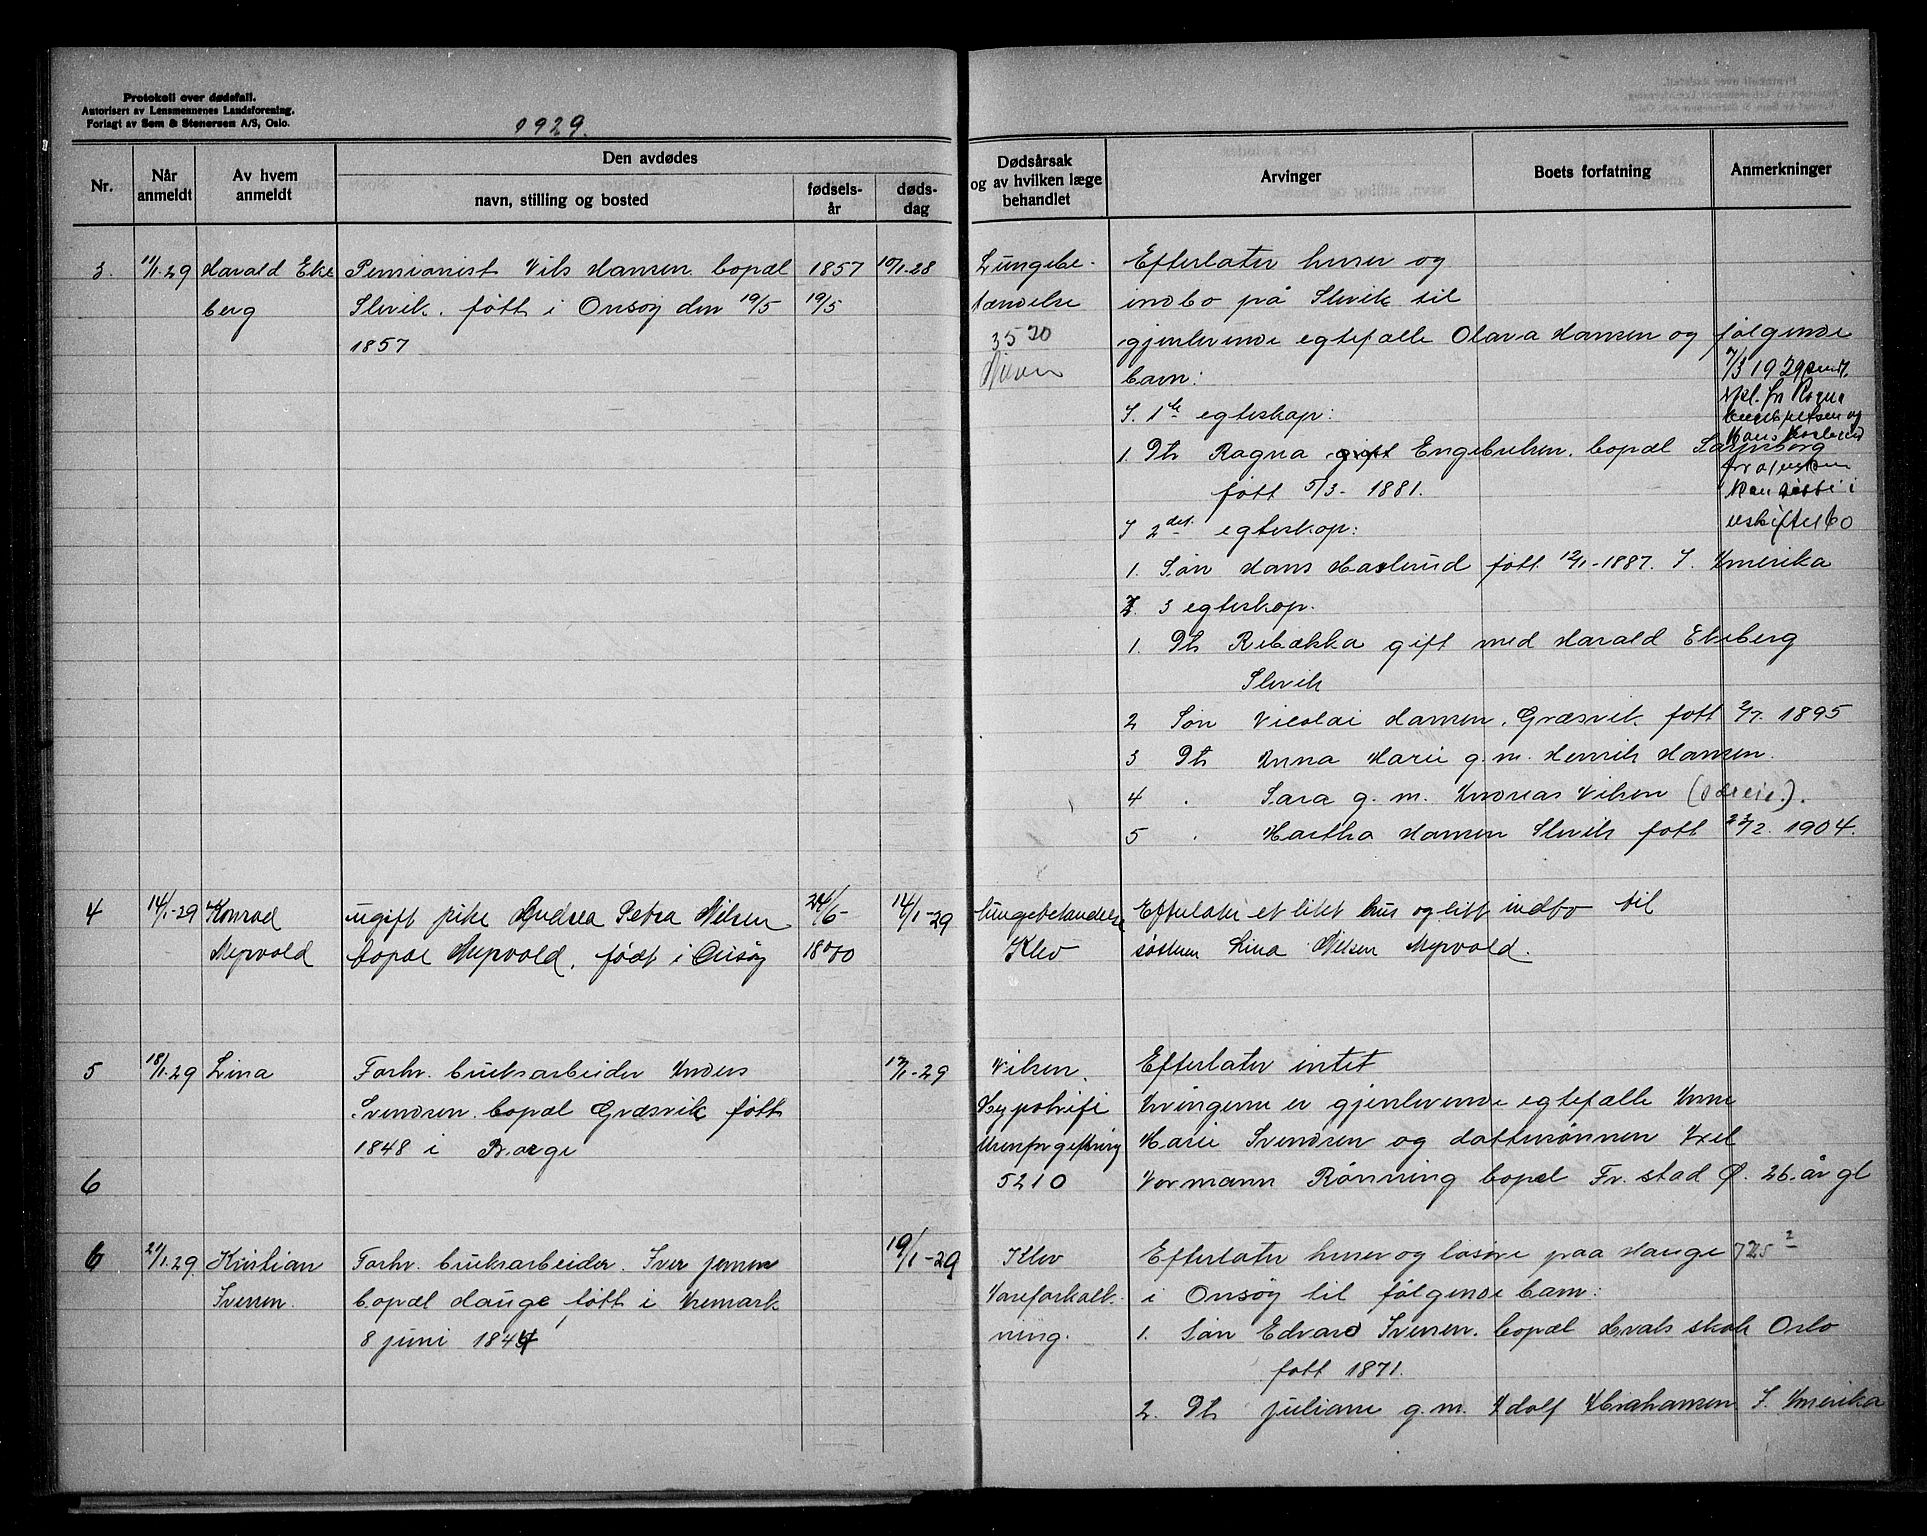 Protokoll over dødsfall.
Autorisert av Lensmennenes Landsforening.
Forlagt av Sem & Stenersen A/S, Oslo.
1929.
Nr.
Når anmeldt
Av hvem anmeldt
Den avdødes
navn, stilling og bosted
fødsels-år
døds-dag
Dødsårsak og av hvilken læge behandlet
Arvinger
Boets forfatning
Anmerkninger
3. 11/1-29 Harald Eke
berg
Pensionist Nils Hansen bopæl
Slevik. født i Onsøy den 19/5
1857
1857
19/5
10/1-28
Lungebe-
tændelse
3520
Efterlater huser og
indbo på Slevik til
gjenlevende egtefælle Olava Hansen og følgende
barn:
I 1ste egteskap:
1. Dtr Ragna gift Engebretsen. bopæl Sarpsborg
født 5/3- 1881.
I 2det egteskap:
1. Søn Hans Haslerud født 12/1-1887. I Amerika
I 3 egteskap.
1. Dtr Rebækka gift med Harald Ekeberg
Slevik
2 Søn Nicolai Hansen. Græsvik født 2/7. 1895
3 Dtr Anna Marie g.m. Henrik Hansen.
4 . Sara g. m. Andreas Nilsen
5 . Martha Hansen Slevik født 23/2. 1904.
7/3 1929 sendt
skl. fr Ragna
Engebretsen og
Hans Haslerud
uskiftet bo
4 14/1-29 Konrad
Myrvold
ugift pike Andrea Petra Nilsen
bopæl Myrvold, født i Onsøy
24/6-
14/1-29
lungebetændelse
Klev
Efterlater et litet hus og litt indbo til
søsteren Lina Nilsen Myrvold.
5 18/1-29 Lina
Forhv. bruksarbeider Anders
Svendsen. bopæl Græsvik født
1848 i Borge
17/1-29
Nilsen.
5210
Efterlater intet
Arvingerne er gjenlevende egtefælle Anne
Marie Svendsen og dattersønnen Axel
Normann Rønning bopæl Fr.stad Ø. 26 år gl
6
6 21/1.29. Kristian
Iversen.
Forhv. bruksarbeider. Iver Jensen
bopæl Hauge født i Aremark
8 juni 1844
19/1-29
Klev
Aareforkalk-
ning.
Efterlater huser og løsøre paa Hauge 725²
i Onsøy til følgende barn:
1. Søn Edvard Iversen. bopæl Hvals skole Oslo
født 1871.
2. Dtr Juliane g.m. Adolf Abrahamsen I. Amerika